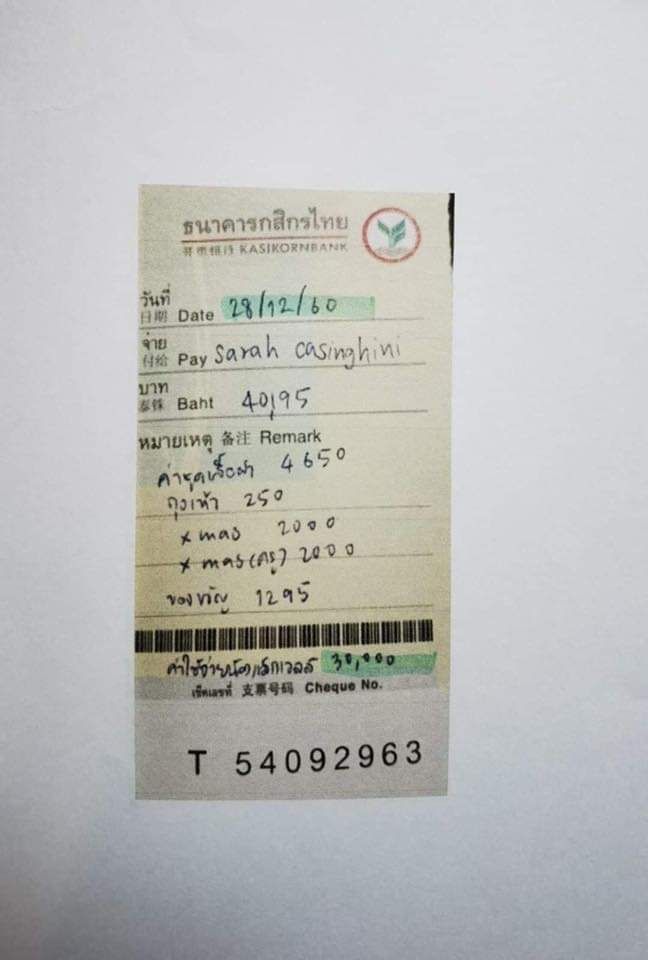 ธนาคารกสิกรไทย
开泰银行 KASIKORNBANK
วันที่
日期 Date 28/12/60
จ่าย
付给 Pay Sarah casinghini
บาท
泰铢 Baht 40,195
หมายเหตุ 备注 Remark
ค่าชุดเสื้อผ้า 4650
ถุงเท้า 250
xmas 2000
xmas (ครู) 2000
ของขวัญ 1295
ค่าใช้จ่าย 30,000
เช็คเลขที่ 支票号码 Cheque No.
T 54092963